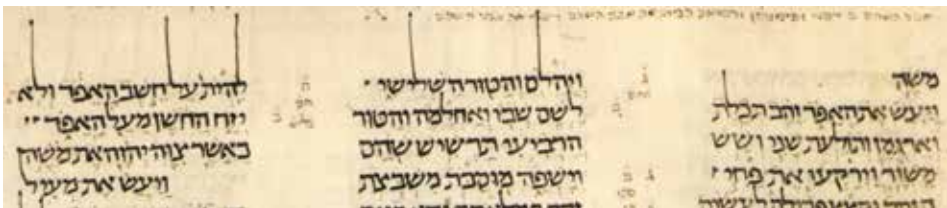 משה
ויעש את האפד זהב תכלת
וארגמן ותולעת שני ושש
משזר וירקעו את פחי
ויהלם והטור השלישי
לשם שבו ואחלמה והטור
הרביעי תרשיש שהם
וישפה מוסבת משבצת
להיות על חשב האפד ולא
יזח החשן מעל האפד
כאשר צוה יהוה את משה
ויעש את מעיל